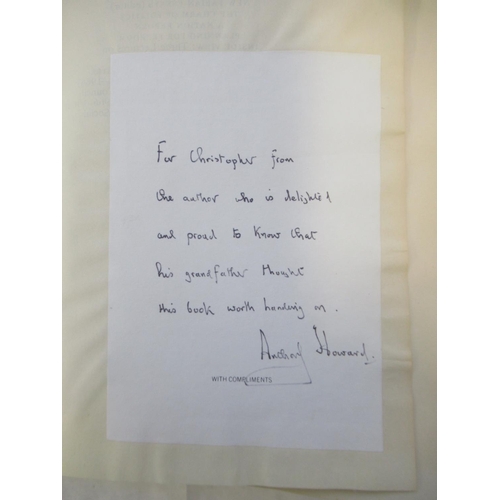 For Christopher from
the author who is delighted
and proud to know that
his grandfather thought
this book worth handing on.
Anthony Howard.
WITH COMPLIMENTS